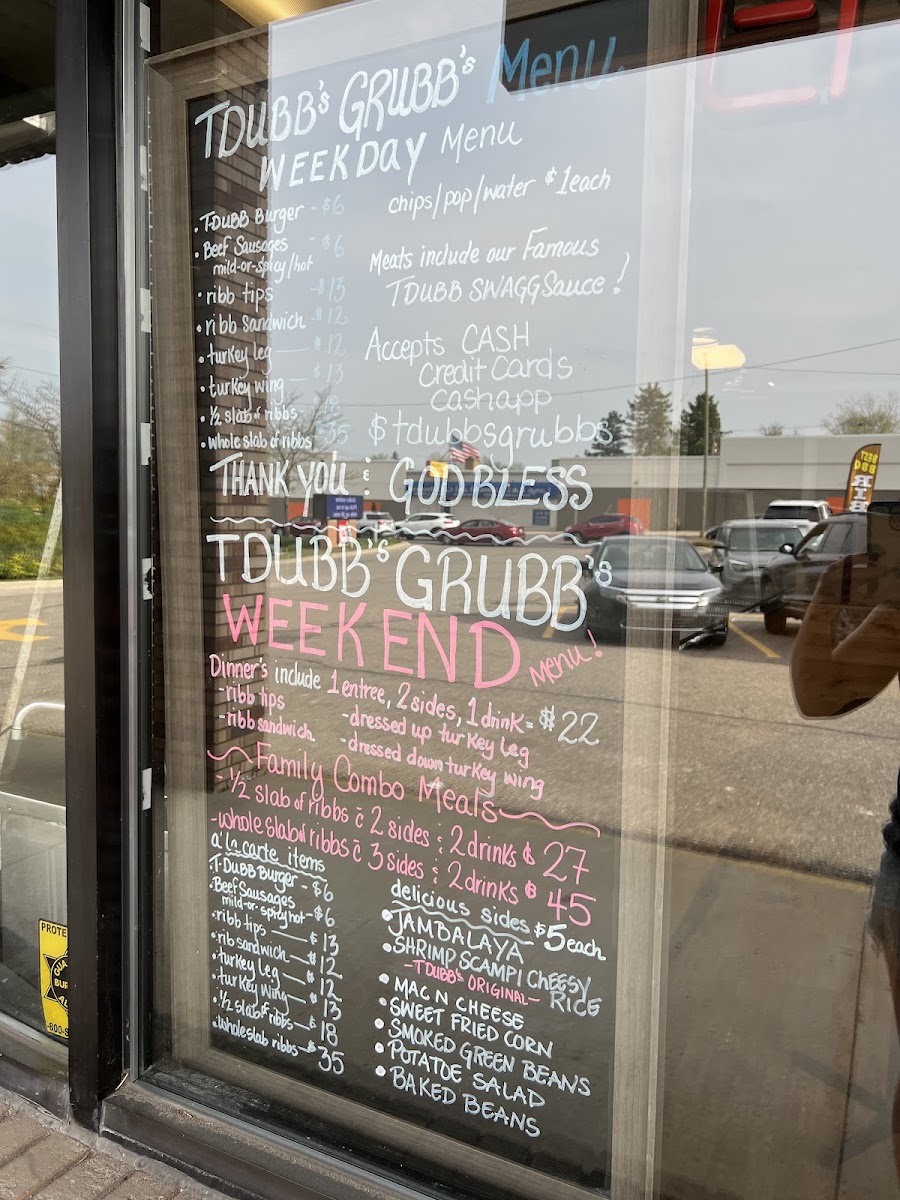 TDUBB's GRUBB's Menu
WEEKDAY Menu
chips/pop/water $1each
• T-DUBB Burger - $6
• Beef Sausages - $6
mild-or-spicy/hot
• ribb tips - $13
• ribb sandwich - $12
• turkey leg — $12
• turkey wing — $13
• 1/2 slab of ribbs
• whole slab of ribbs 35
Meats include our Famous
TDUBB SWAGGSauce!
Accepts CASH
Credit Cards
cashapp
$tdubbsgrubbs
THANK YOU : GOD BLESS
TDUBB's GRUBB's
WEEKEND Menu!
Dinner's include 1 entree, 2 sides, 1 drink = $22
- ribb tips
- ribb sandwich
- dressed up turkey leg
- dressed down turkey wing
Family Combo Meals
- 1/2 slab of ribbs c̄ 2 sides : 2 drinks $27
- whole slab of ribbs c̄ 3 sides : 2 drinks $45
a'la carte items
• T-DUBB Burger - $6
• Beef Sausages
mild-or-spicy hot - $6
• ribb tips — $13
• rib sandwich — $12
• turkey leg — $12
• turkey wing — $13
• 1/2 slab of ribbs — $18
• whole slab ribbs — $35
delicious sides $5 each
• JAMBALAYA
• SHRIMP SCAMPI CHEESY RICE
- TDUBB's ORIGINAL -
• MAC N CHEESE
• SWEET FRIED CORN
• SMOKED GREEN BEANS
• POTATOE SALAD
• BAKED BEANS
BEST
BBQ
RIB
PROTE